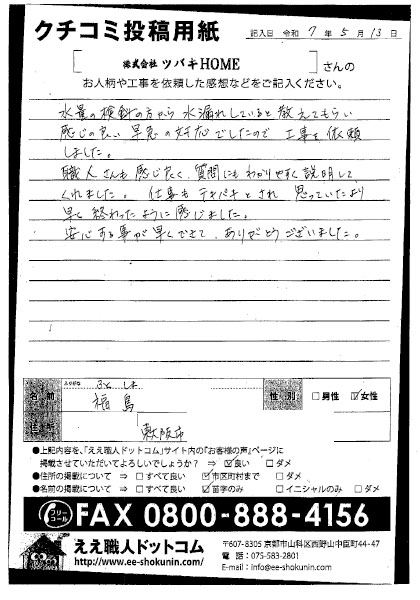 クチコミ投稿用紙
記入日 令和 7 年 5 月 13 日
[ 株式会社 ツバキHOME ] さんの
お人柄や工事を依頼した感想などをご記入ください。
水量の検針の方から 水漏れしていると教えてもらい
感じの良い 早急の対応でしたので 工事を依頼
しました。
職人さんも感じよく、質問にもわかりやすく説明して
くれました。 仕事もテキパキとされ 思っていたより
早く終わったように感じました。
安心する事が早くできて、ありがとうございました。
ふりがな
名前 福島
性別 □男性 ☑女性
住所 大阪市
●上記内容を、「ええ職人ドットコム」サイト内の『お客様の声』ページに
掲載させていただいてよろしいでしょうか? ⇒ ☑良い □ダメ
●住所の掲載について ⇒ □すべて良い ☑市区町村まで □ダメ
●名前の掲載について ⇒ □すべて良い ☑苗字のみ □イニシャルのみ □ダメ
フリーコール FAX 0800-888-4156
ええ職人ドットコム
http://www.ee-shokunin.com/
〒607-8305 京都市山科区西野山中臣町44-47
電話:075-583-2801
E-mail:info@ee-shokunin.com